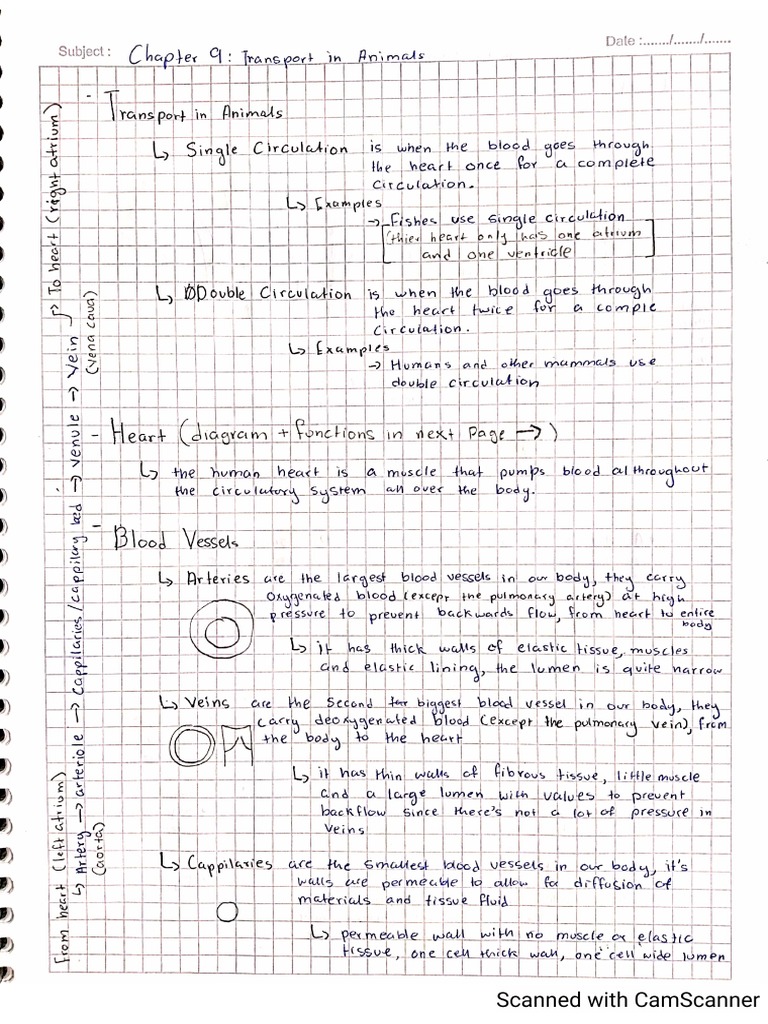 Subject : Chapter 9: Transport in Animals
Date :......./......./.......
- Transport in Animals
↳ Single Circulation is when the blood goes through
the heart once for a complete
circulation.
↳ Examples
→ Fishes use single circulation
[thier heart only has one atrium
and one ventricle]
↳ Double Circulation is when the blood goes through
the heart twice for a comple
circulation.
↳ Examples
→ Humans and other mammals use
double circulation
- Heart (diagram + functions in next page →)
↳ the human heart is a muscle that pumps blood al throughout
the circulatory system all over the body.
- Blood Vessels
↳ Arteries are the largest blood vessels in our body, they carry
oxygenated blood (except the pulmonary artery) at high
pressure to prevent backwards flow, from heart to entire
body
↳ it has thick walls of elastic tissue, muscles
and elastic lining, the lumen is quite narrow
↳ Veins are the second biggest blood vessel in our body, they
carry deoxygenated blood (except the pulmonary vein), from
the body to the heart
↳ it has thin walls of fibrous tissue, little muscle
and a large lumen with values to prevent
backflow since there's not a lot of pressure in
veins
↳ Cappilaries are the smallest blood vessels in our body, it's
walls are permeable to allow for diffusion of
materials and tissue fluid
↳ permeable wall with no muscle or elastic
tissue, one cell thick wall, one cell wide lumen
From heart (left atrium)
↳ Artery → arteriole → Cappilaries/cappilary bed → venule → Vein → To heart (right atrium)
(aorta)
(vena cava)
Scanned with CamScanner